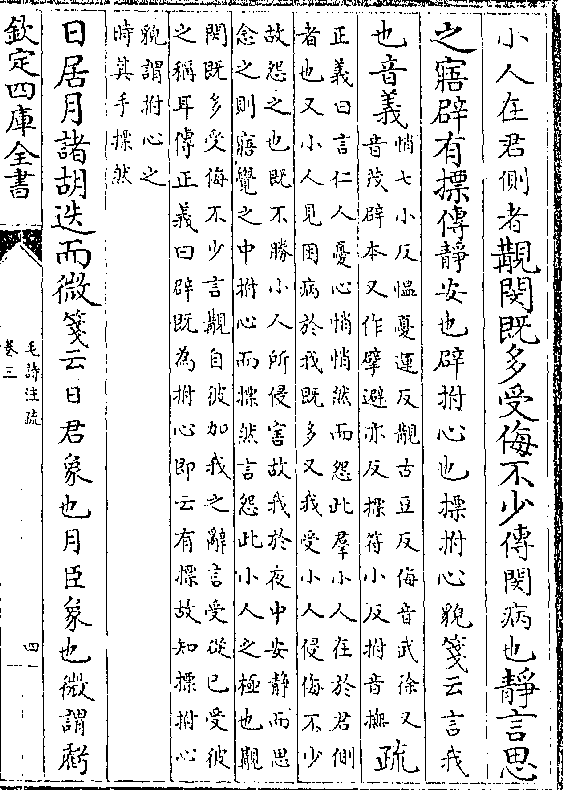 小人在君側者覯閔既多受侮不少傳閔病也靜言思
之寤辟有摽傳靜安也辟拊心也摽拊心貌箋云言我
也音義
悄七小反慍憂運反覯古豆反侮音武徐又
音茂辟本又作擘避亦反摽符小反拊音撫
疏
正義曰言仁人憂心悄悄然而怨此羣小人在於君側
者也又小人見困病於我既多又我受小人侵侮不少
故怨之也既不勝小人所侵害故我於夜中安靜而思
念之則寤覺之中拊心而摽然言怨此小人之極也覯
閔既多受侮不少言覯自彼加我之辭言受從已受彼
之稱耳傳正義曰辟既為拊心即云有摽故知摽拊心
貌謂拊心之
時其手摽然
日居月諸胡迭而微箋云日君象也月臣象也微謂虧
欽定四庫全書
毛詩注疏
卷三
四